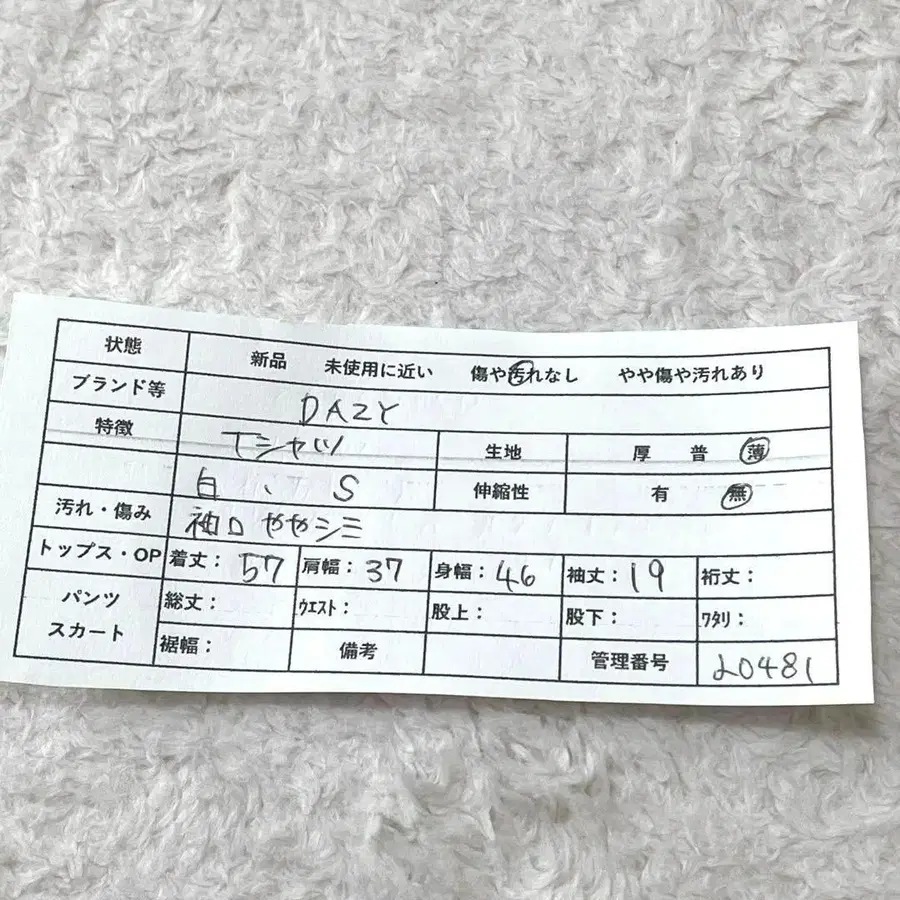 状態 新品 未使用に近い 傷や汚れなし やや傷や汚れあり
ブランド等 DAZY
特徴 Tシャツ 生地 厚 普 薄
白、S 伸縮性 有 無
汚れ・傷み 袖口ややシミ
トップス・OP 着丈: 57 肩幅: 37 身幅: 46 袖丈: 19 裄丈:
パンツ 総丈: ウエスト: 股上: 股下: ワタリ:
スカート 裾幅: 備考 管理番号 20481